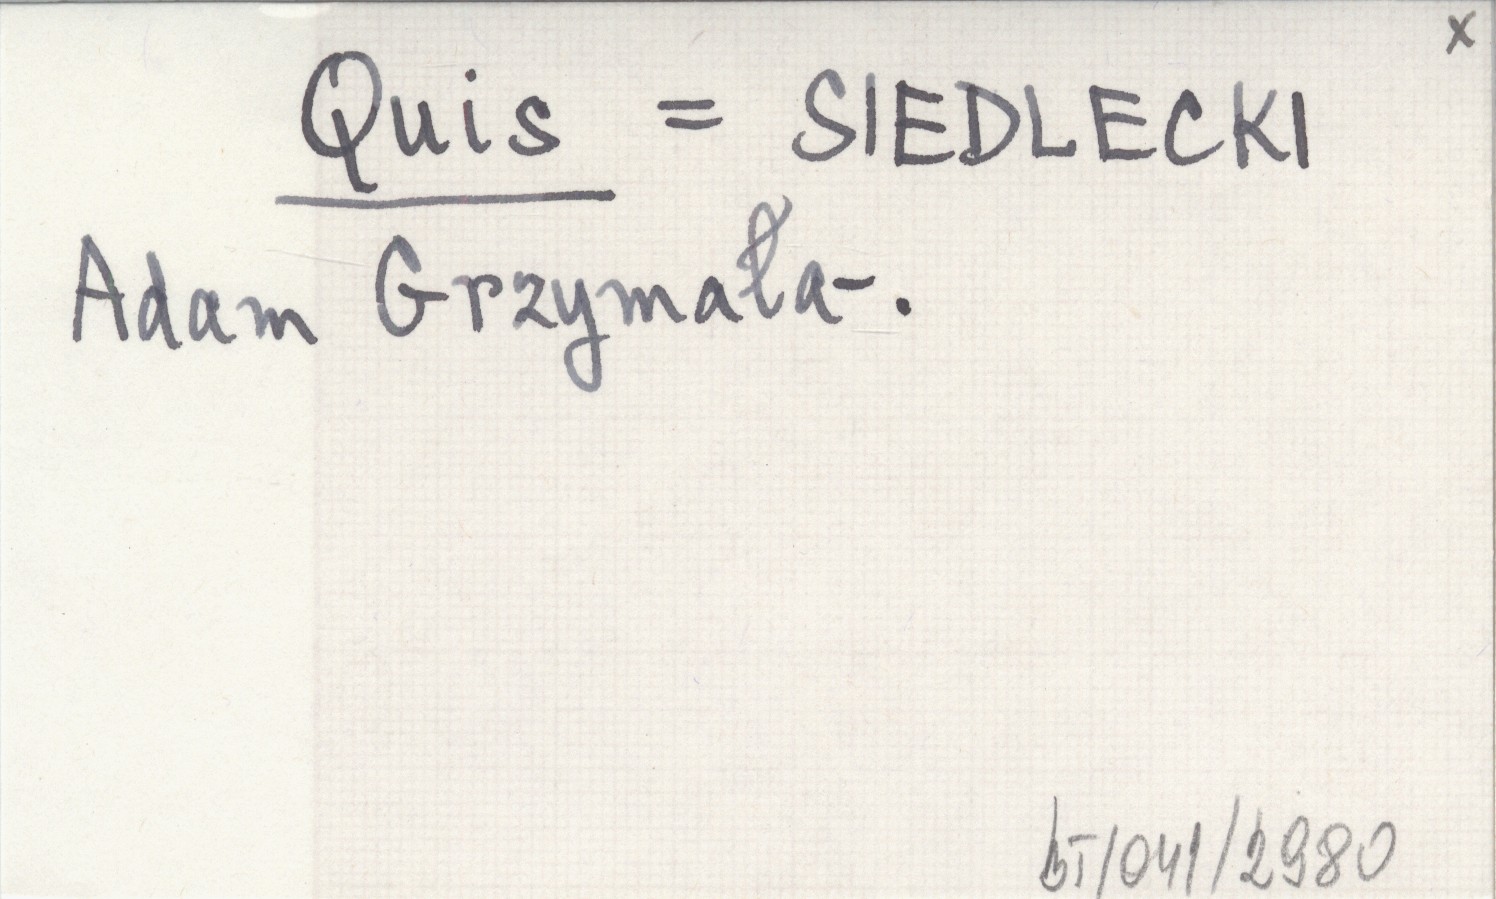 x
Quis = SIEDLECKI
Adam Grzymała-.
bT/041/2980